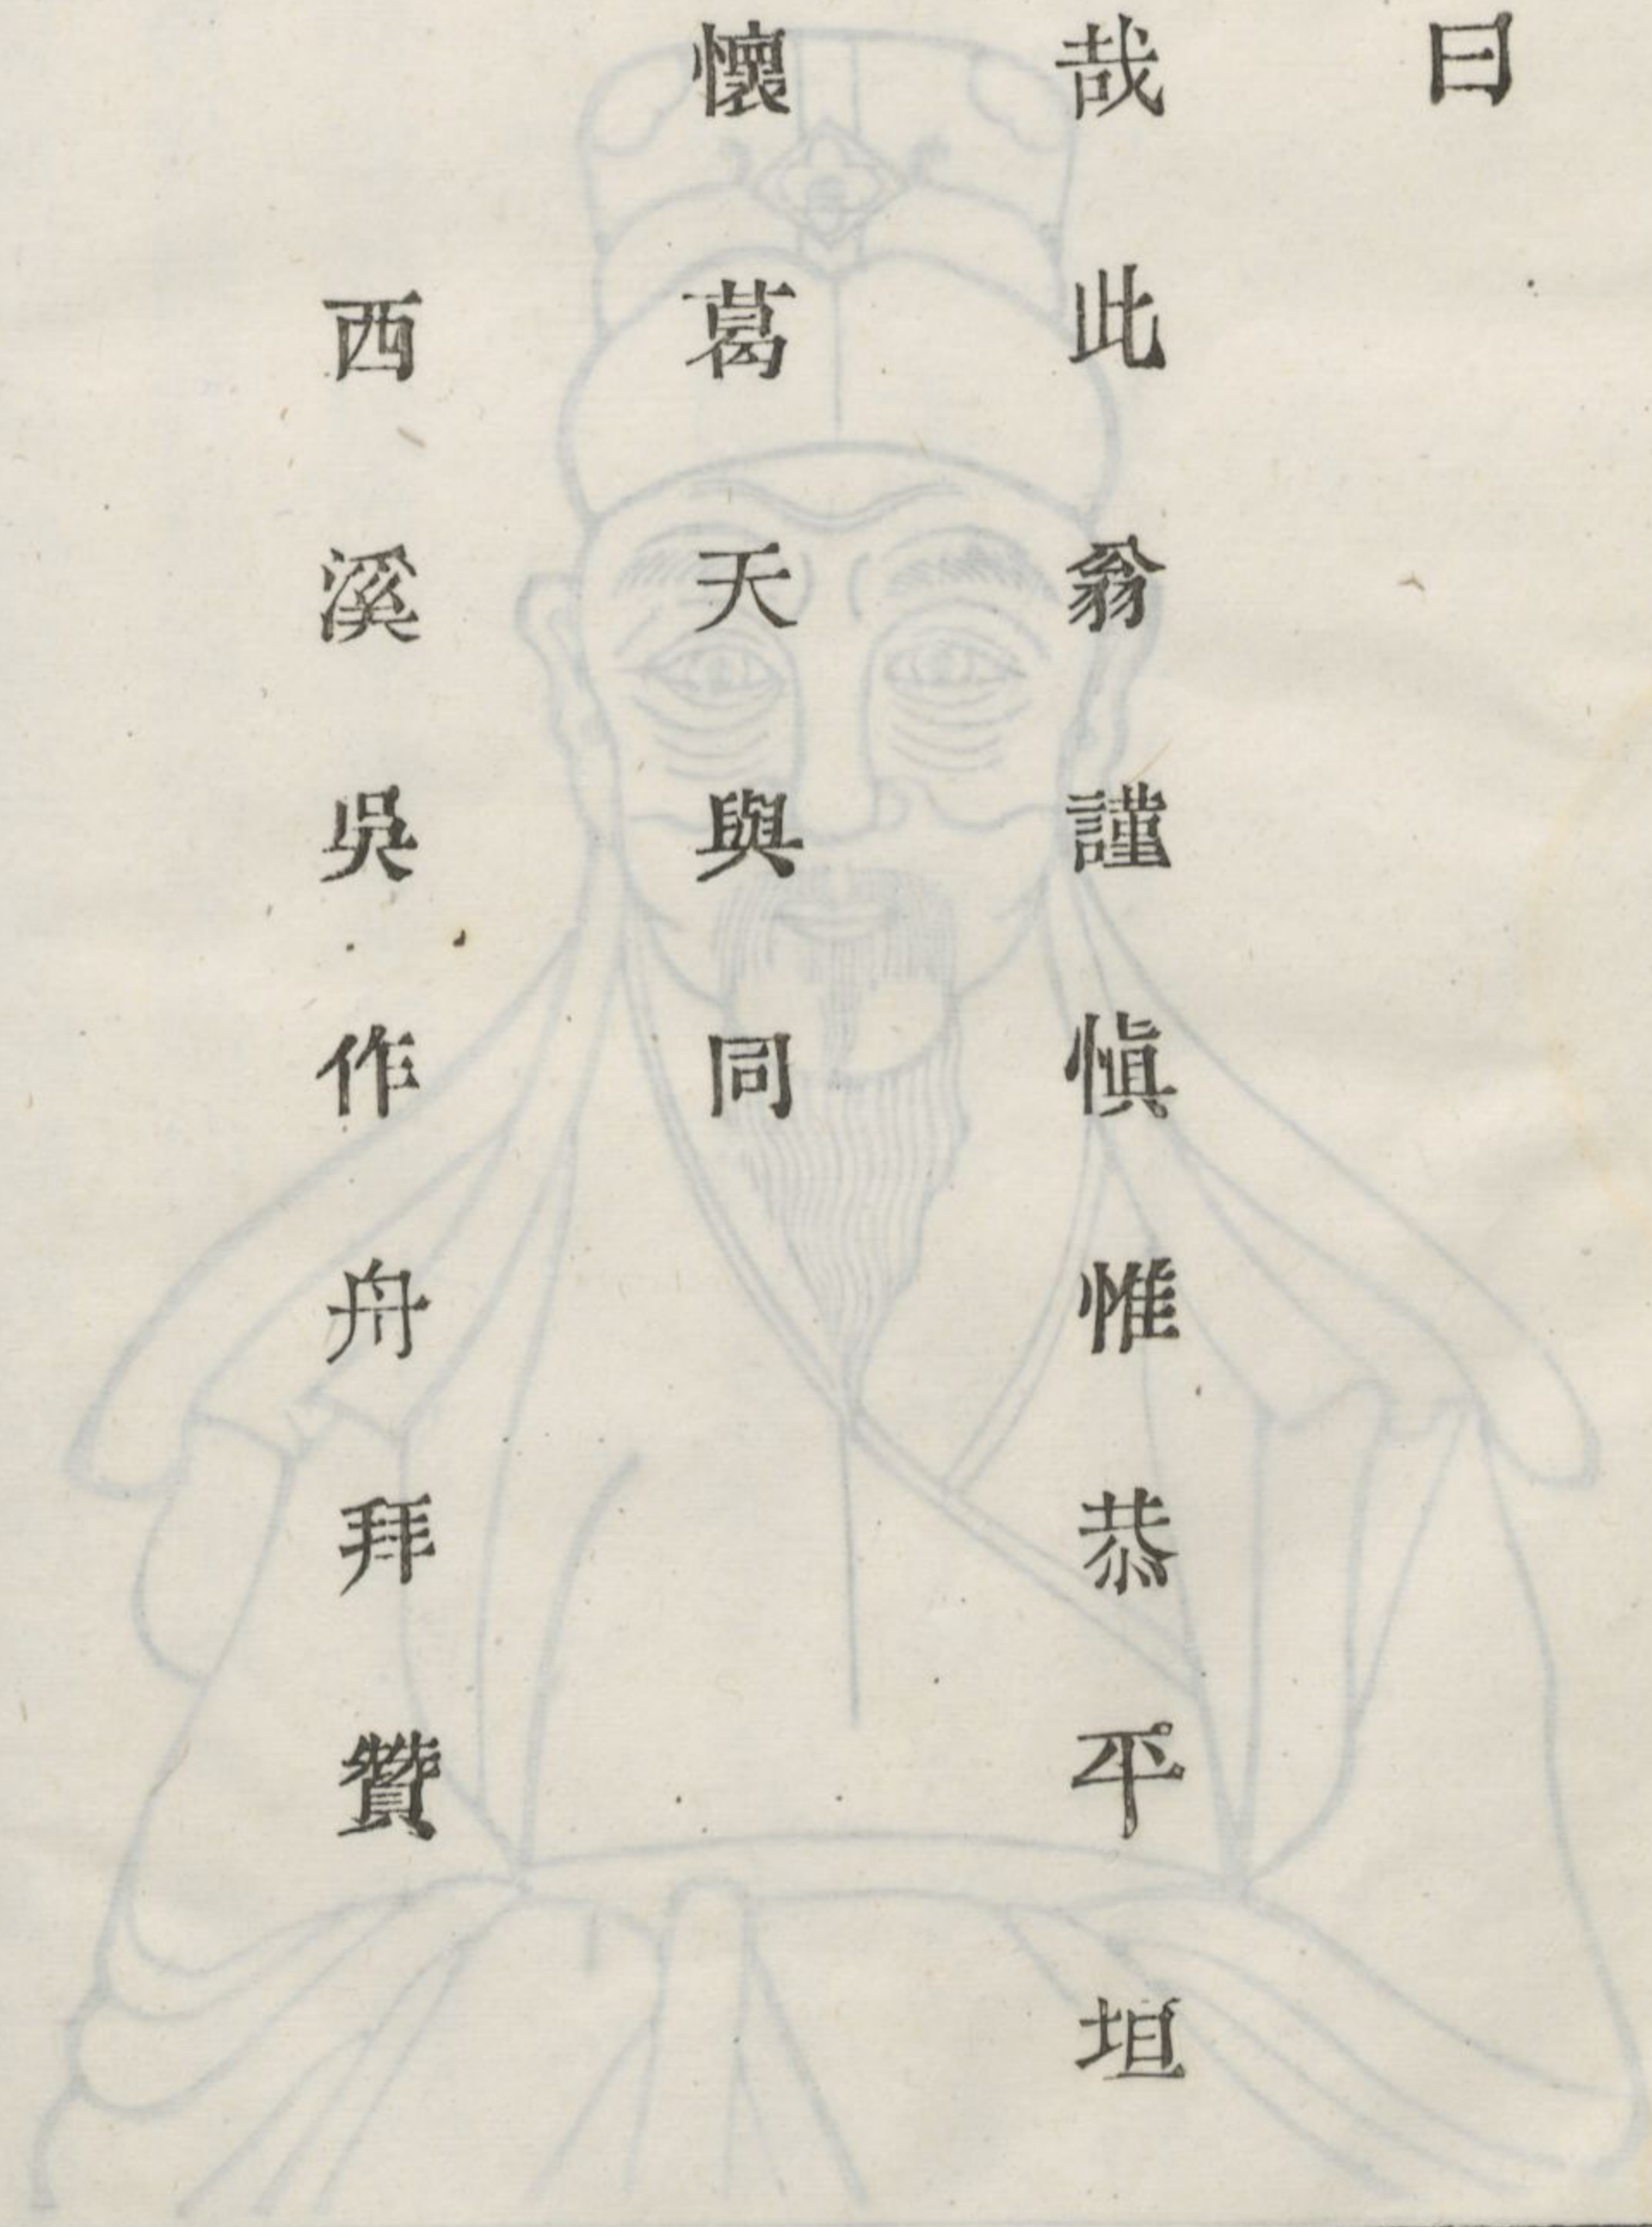 曰
哉此翁謹慎惟恭平坦
懷葛天與同
西溪吳作舟拜贊